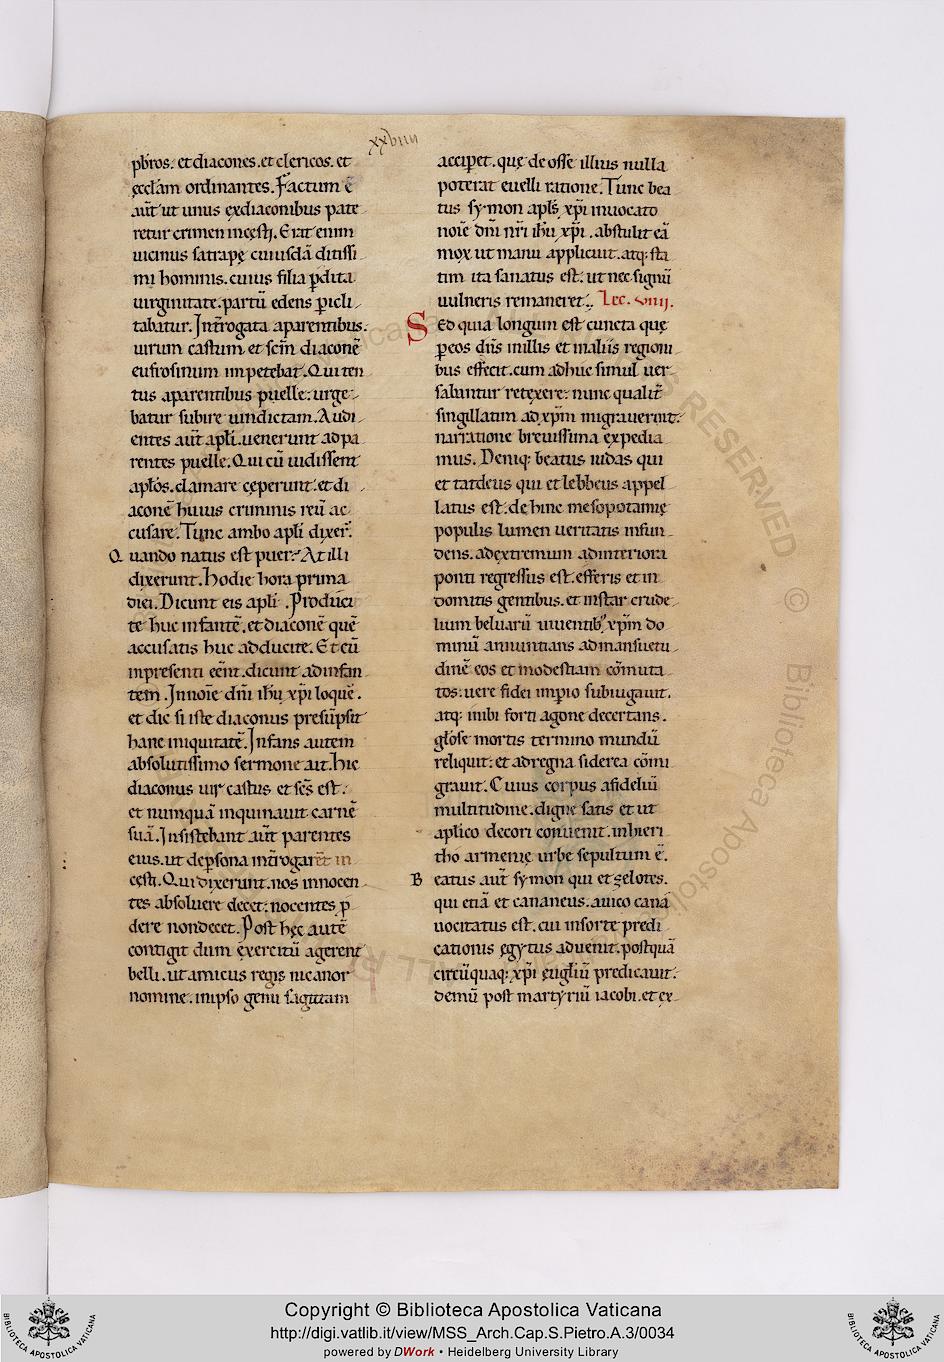 xxviiii
pb̄ros. et diacones. et clericos. et
ęcclam̄ ordinantes. Factum ē
aut̄ ut unus ex diaconibus pate
retur crimen incęsti. Erat enim
uicinus satrapę cuiusdā ditissi
mi hominis. cuius filia p̄dita
uirginitate. partū edens p̄icli
tabatur. Int̄rogata a parentibus.
uirum castum et sc̄m diaconē
eufrosinum impetebat. Qui ten
tus a parentibus puelle: urge
batur subire uindictam. Audi
entes aut̄ apl̄i. uenerunt ad pa
rentes puelle. Qui cū uidissent
apl̄os. clamare cęperunt: et di
aconē huius criminis reū ac
cusare. Tunc ambo apl̄i dixer̄.
Quando natus est puer? At illi
dixerunt. Hodie hora prima
diei. Dicunt eis apl̄i. Producī
te huc infantē. et diaconē quē
accusatis huc adducite. Et cū
inpresenti ēent. dicunt ad infan
tem. In noīe dn̄i ih̄u xp̄i loquē.
et dic si iste diaconus presūpsit
hanc iniquitatē. Infans autem
absolutissimo sermone ait. Hic
diaconus uir castus et sc̄s est.
et numquā inquinauit carnē
suā. Insistebant aut̄ parentes
eius. ut de p̄sona int̄rogarēt in
cęsti. Qui dixerunt. nos innocen
tes absoluere decet: nocentes p̄
dere non decet. Post hęc autē
contigit dum exercitū agerent
belli. ut amicus regis nicanor
nomine. in ipso genu sagittam
acciperet. quę de osse illius nulla
poterat euelli ratione. Tunc bea
tus symon apl̄s xp̄i inuocato
noīe dn̄i nr̄i ih̄u xp̄i. abstulit eā
mox ut manū applicuit. atq: sta
tim ita sanatus est: ut nec signū
uulneris remaneret. Lec. viiii.
Sed quia longum est cuncta quę
p̄ eos dn̄s in illis et in aliis regioni
bus effecit. cum adhuc simul uer
sabantur retexere: nunc qualit̄
singillatim ad xp̄m migrauerunt:
narratione breuissima expedia
mus. Deniq: beatus iudas qui
et tatdeus qui et lebbeus appel
latus est. dehinc mesopotamię
populis lumen ueritatis infun
dens. ad extremum ad interiora
ponti regressus est. efferis et in
domitis gentibus. et instar crude
lium beluarū uiuentib: xp̄m do
minū annuntians ad mansuetu
dinē eos et modestiam cōmuta
tos: uere fidei imp̄io subiugauit.
atq: inibi forti agone decertans.
gl̄ose mortis termino mundū
reliquit: et ad regna siderea cōmi
grauit. Cuius corpus a fideliū
multitudine. digne satis et ut
ap̄lico decori conuenit. in hieri
tho armenię urbe sepultum ē.
Beatus aut̄ symon qui et zelotes.
qui etiā et cananeus. a uico canā
uocitatus est. cui in sorte predi
cationis egyptus aduenit. postquā
circūquaq: xp̄i euglīū predicauit:
demū post martyriū iacobi. et ex
Copyright © Biblioteca Apostolica Vaticana
http://digi.vatlib.it/view/MSS_Arch.Cap.S.Pietro.A.3/0034
powered by DWork • Heidelberg University Library
BIBLIOTECA APOSTOLICA VATICANA
BIBLIOTECA APOSTOLICA VATICANA